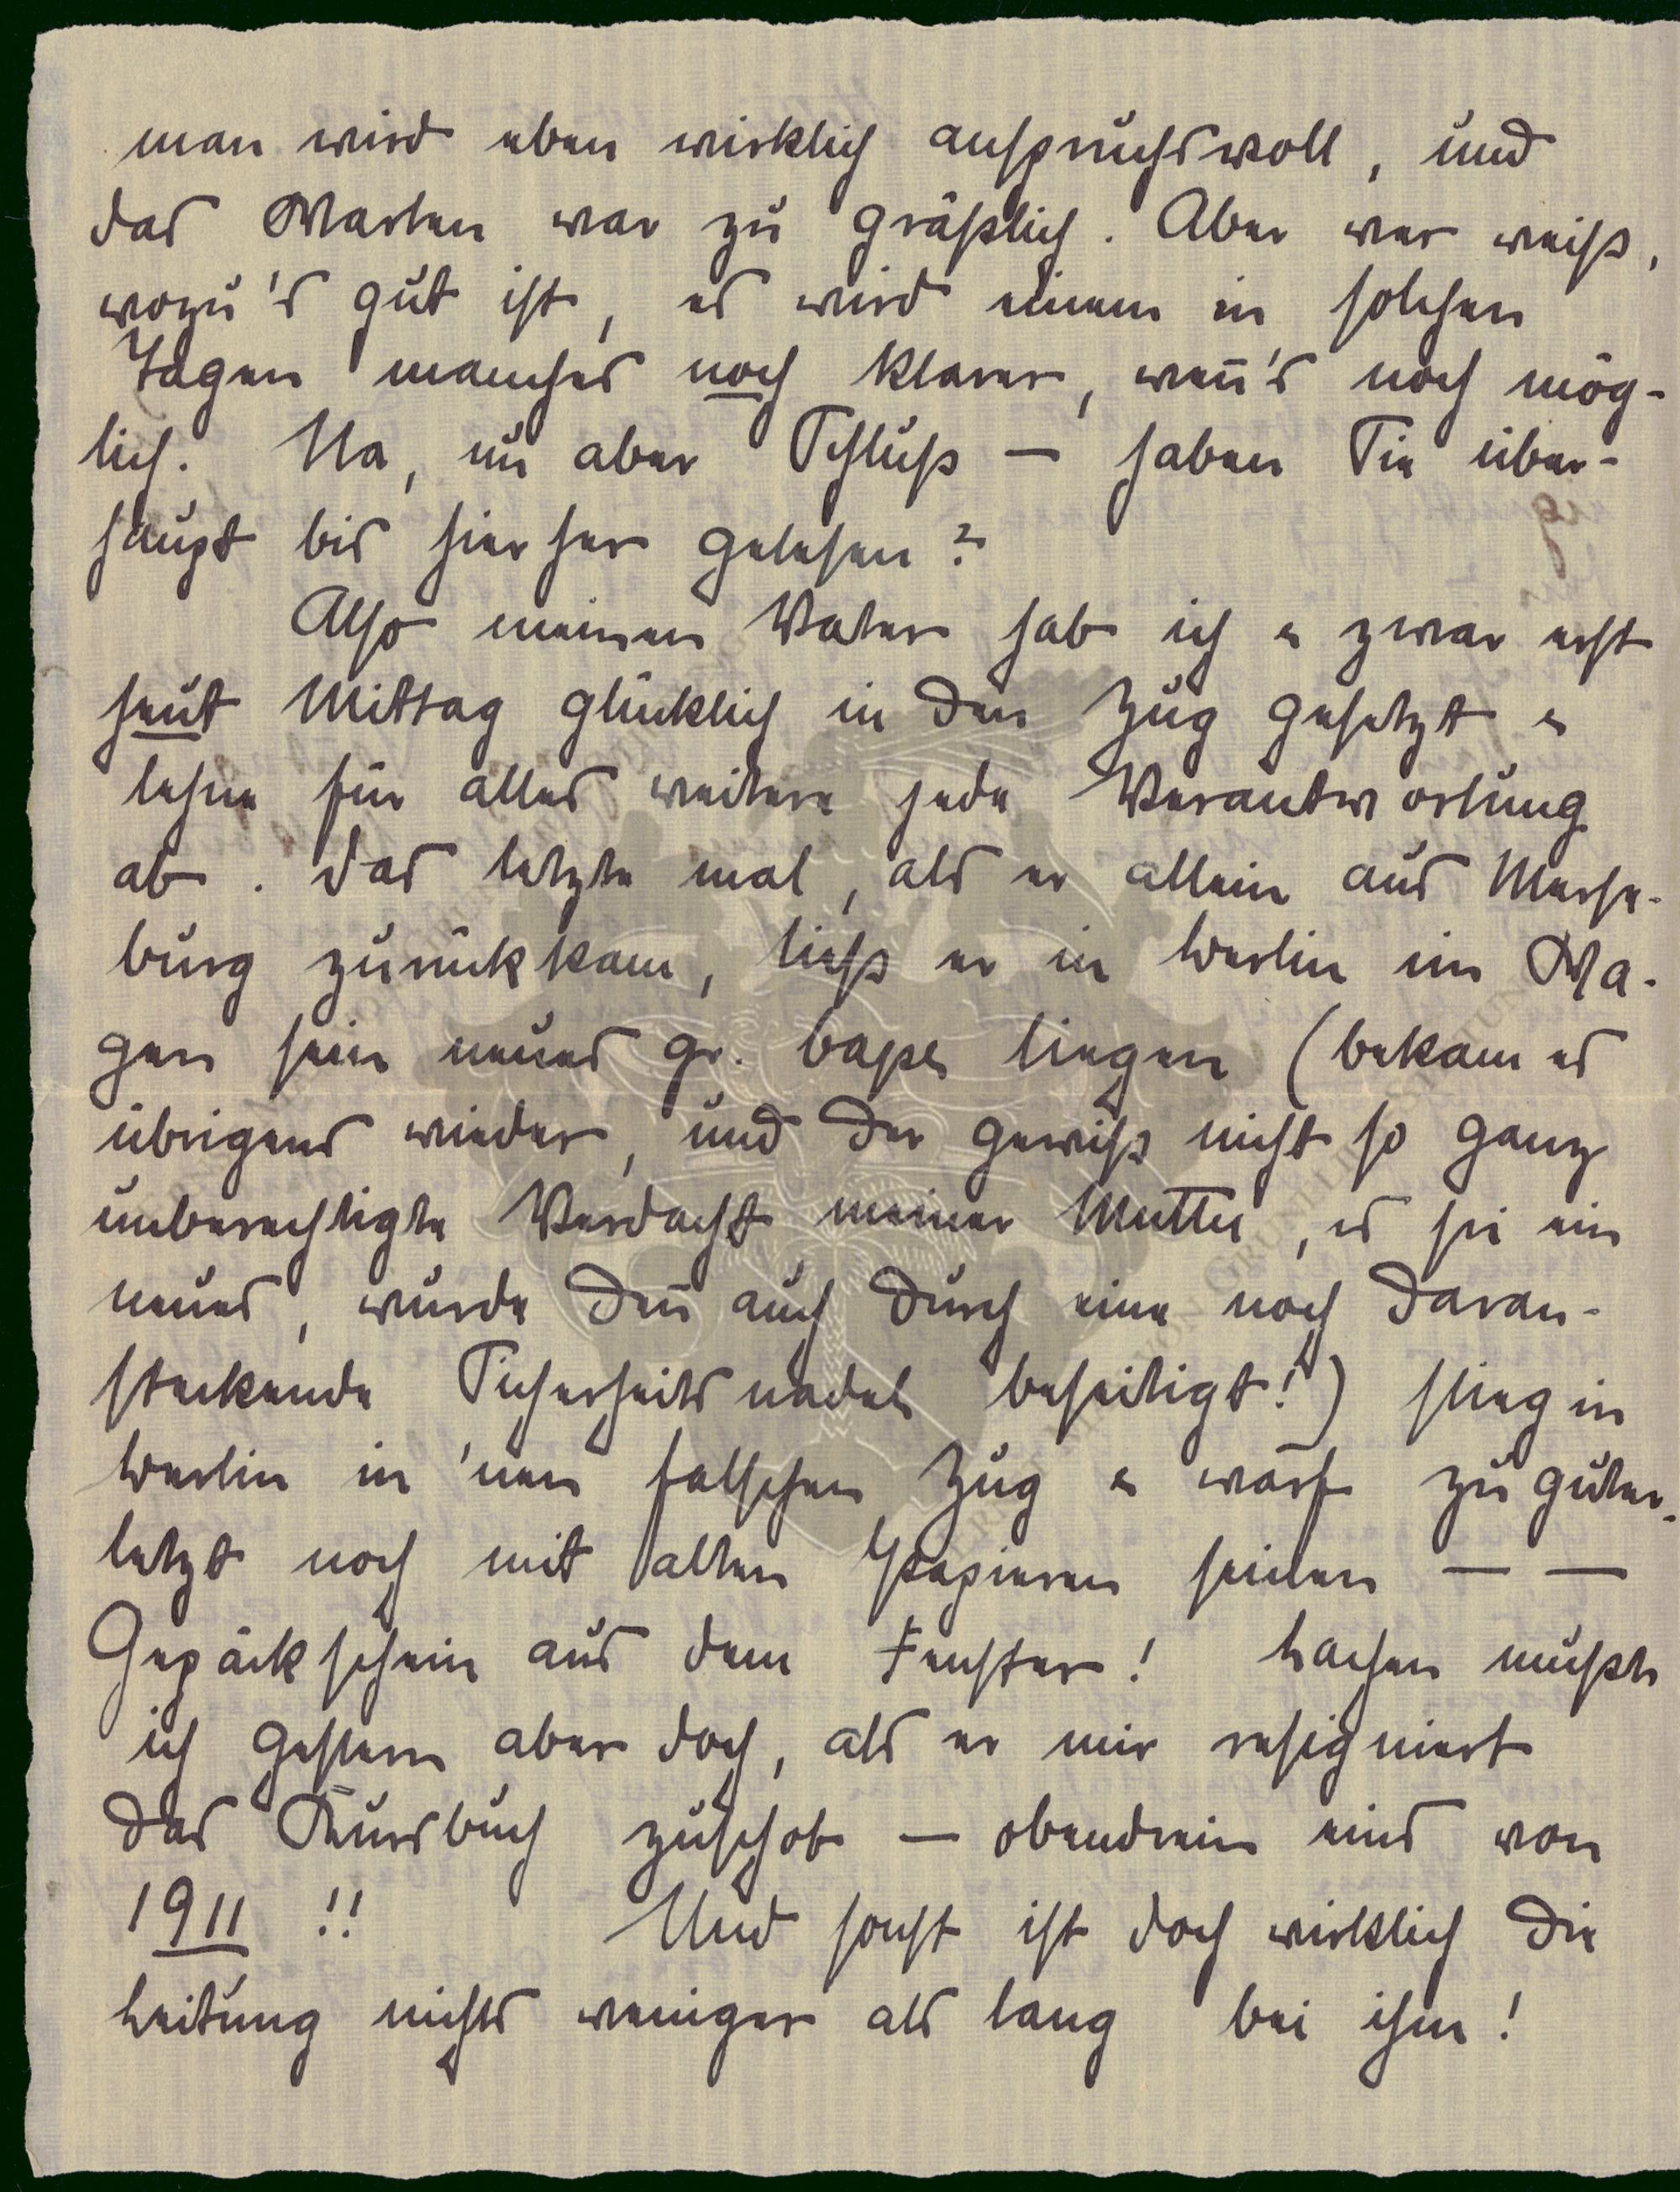 man wird eben wirklich anspruchsvoll, und
das Warten war zu gräßlich. Aber wer weiß,
wozu's gut ist, es wird einem in solchen
Tagen manches noch klarer, weñ's noch mög-
lich. Na, nu aber Schluß — haben Sie über-
haupt bis hierher gelesen?
Also meinen Vater hab ich u zwar erst
heut Mittag glücklich in den Zug gesetzt u
lehne für alles weitere jede Verantwortung
ab. Das letzte mal, als er allein aus Merse-
burg zurückkam, ließ er in Berlin im Wa-
gen sein neues gr. Cape liegen (bekam es
übrigens wieder, und der gewiß nicht so ganz
unberechtigte Verdacht meiner Mutter, es sei ein
neues, wurde deñ auch durch eine noch daran-
steckende Sicherheitsnadel beseitigt!) stieg in
Berlin in 'nen falschen Zug u warf zu guter-
letzt noch mit alten Papieren seinen — —
Gepäckschein aus dem Fenster! Lachen mußte
ich gestern aber doch, als er mir resigniert
das Kursbuch zuschob — obendrein eins von
1911!! Und sonst ist doch wirklich die
Leitung nichts weniger als lang bei ihm!